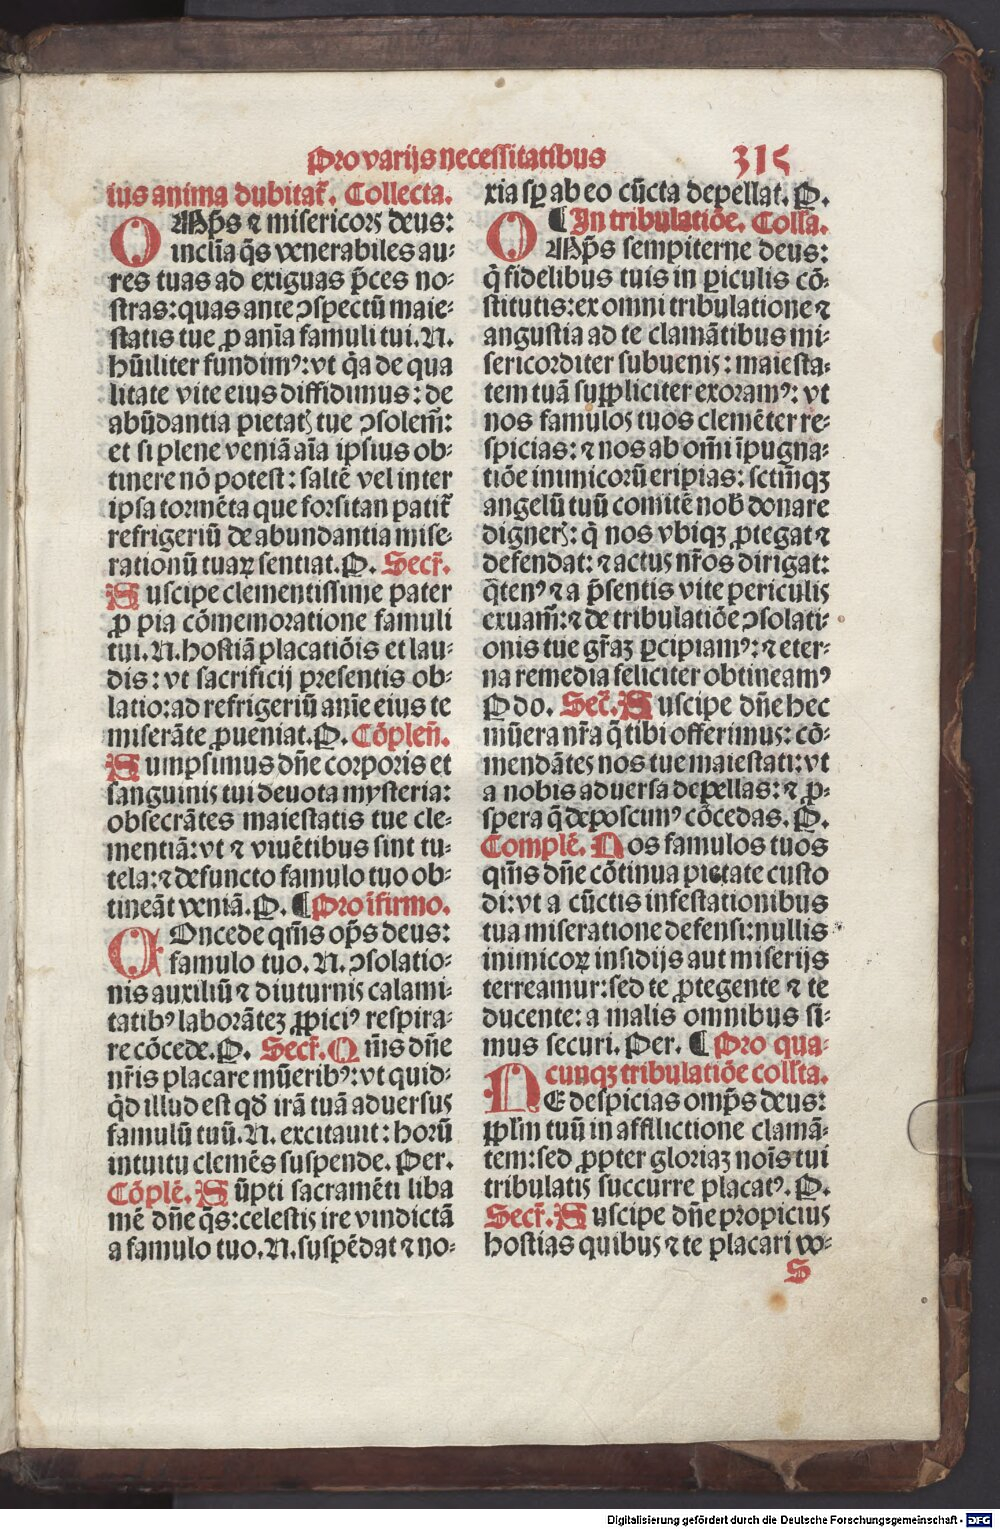 Pro varijs necessitatibus 315
ius anima dubitat᷑. Collecta.
OMp̄s ⁊ misericors deus:
inclīa q̄s venerabiles au-
res tuas ad exiguas p̄ces no-
stras: quas ante ↄspectū maie-
statis tue ꝓ anīa famuli tui. N.
hūiliter fundimꝰ: vt q̄a de qua
litate vite eius diffidimus: de
abūdantia pietatꝭ tue ↄsolem̄:
et si plene veniā aīa ipsius ob-
tinere nō potest: saltē vel inter
ipsa tormēta que forsitan patit᷑
refrigeriū de abundantia mise-
rationū tuaꝝ sentiat. P. Secr̄.
Suscipe clementissime pater
ꝓ pia cōmemoratione famuli
tui. N. hostiā placatiōis et lau-
dis: vt sacrificij presentis ob-
latio: ad refrigeriū anīe eius te
miserāte ꝓueniat. P. Cōplen̄.
Sumpsimus dn̄e corporis et
sanguinis tui deuota mysteria:
obsecrātes maiestatis tue cle-
mentiā: vt ⁊ viuētibus sint tu-
tela: ⁊ defuncto famulo tuo ob-
tineāt veniā. P. ¶ Pro īfirmo.
COncede qm̄s op̄s deus:
famulo tuo. N. ↄsolatio-
nis auxiliū ⁊ diuturnis calami-
tatibꝰ laborātez ꝓpiciꝰ respira-
re cōcede. P. Secr̄. Qm̄s dn̄e
nr̄is placare mūeribꝰ: vt quid-
q̄d illud est qd̄ irā tuā aduersus
famulū tuū. N. excitauit: horū
intuitu clemēs suspende. Per.
Cōplē. Sūpti sacramēti liba
mē dn̄e q̄s: celestis ire vindictā
a famulo tuo. N. suspēdat ⁊ no-
xia sꝑ ab eo cūcta depellat. P.
¶ In tribulatiōe. Coll̄a.
OMp̄s sempiterne deus:
q̄ fidelibus tuis in ꝑiculis cō-
stitutis: ex omni tribulatione ⁊
angustia ad te clamātibus mi-
sericorditer subuenis: maiesta-
tem tuā suppliciter exoramꝰ: vt
nos famulos tuos clemēter re-
spicias: ⁊ nos ab om̄i īpugna-
tiōe inimicorū eripias: sctm̄qꝫ
angelū tuū comitē nob̄ donare
digneꝭ: q̄ nos vbiqꝫ ꝓtegat ⁊
defendat: ⁊ actus nr̄os dirigat:
q̄tenꝰ ⁊ a p̄sentis vite periculis
exuam̄: ⁊ de tribulatiōe ↄsolati-
onis tue gr̄aꝫ ꝑcipiamꝰ: ⁊ eter-
na remedia feliciter obtineamꝰ
P do. Sec̄. Suscipe dn̄e hec
mūera nr̄a q̄ tibi offerimus: cō-
mendātes nos tue maiestati: vt
a nobis aduersa depellas: ⁊ ꝓ-
spera q̄ deposcunꝰ cōcedas. P.
Complē. Nos famulos tuos
qm̄s dn̄e cōtinua pietate custo
di: vt a cūctis infestationibus
tua miseratione defensi: nullis
inimicoꝝ insidijs aut miserijs
terreamur: sed te ꝓtegente ⁊ te
ducente: a malis omnibus si-
mus securi. Per. ¶ Pro qua-
cunqꝫ tribulatiōe coll̄ta.
NE despicias omp̄s deus:
ppl̄m tuū in afflictione clamā-
tem: sed ꝓpter gloriaꝫ noīs tui
tribulatis succurre placatꝰ. P.
Secr̄. Suscipe dn̄e propicius
hostias quibus ⁊ te placari vo-
S
Digitalisierung gefördert durch die Deutsche Forschungsgemeinschaft - DFG